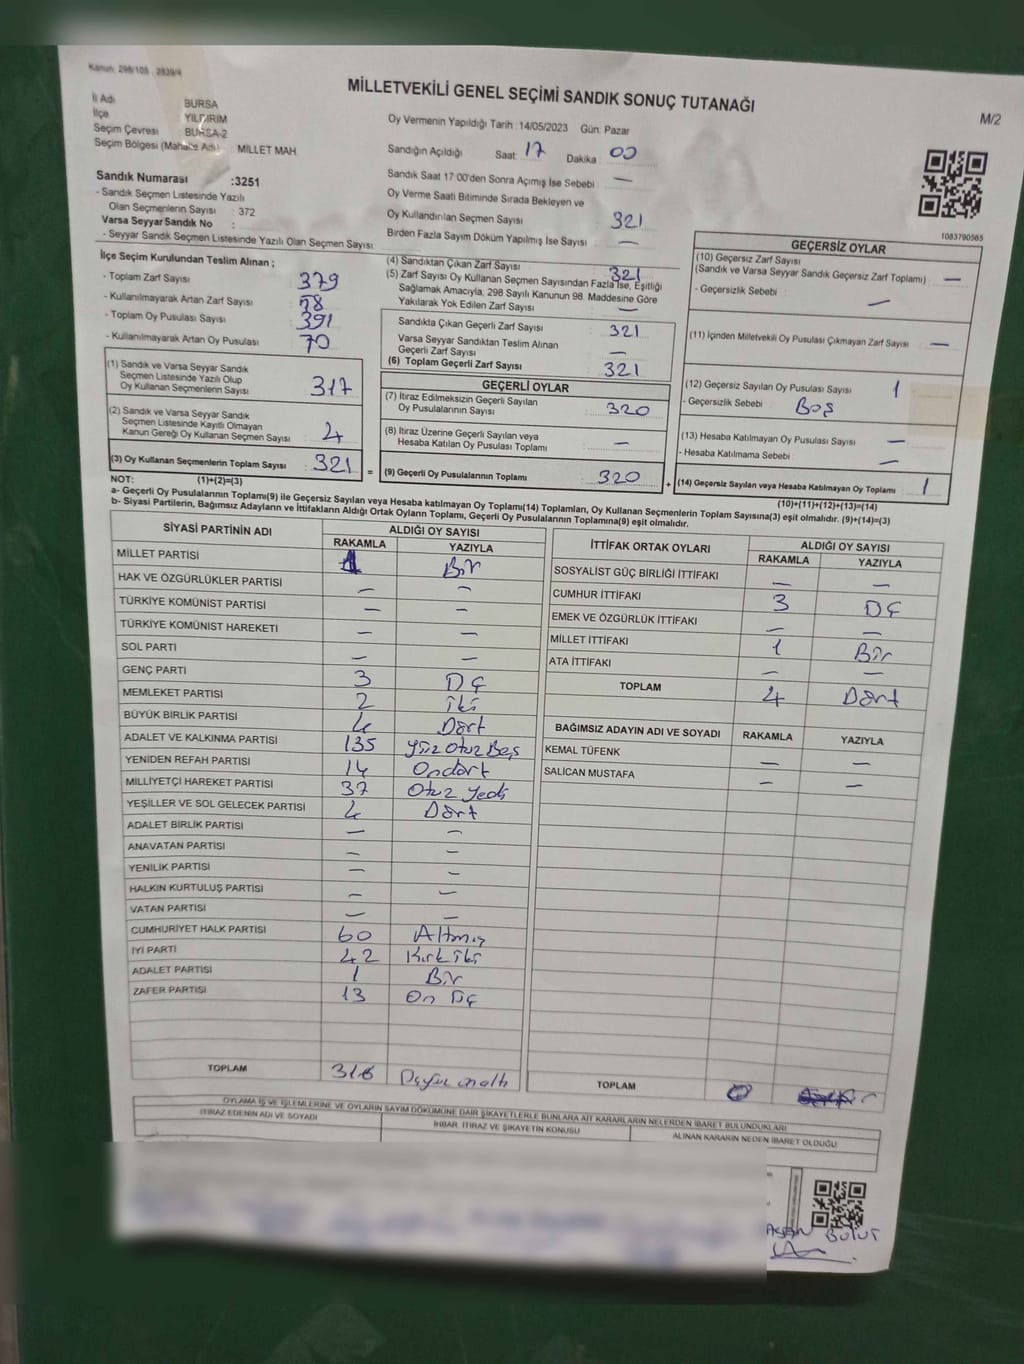 Kanun: 298/105 , 2839/4
MİLLETVEKİLİ GENEL SEÇİMİ SANDIK SONUÇ TUTANAĞI
M/2
İl Adı BURSA
İlçe YILDIRIM
Seçim Çevresi BURSA-2
Seçim Bölgesi (Mahalle Adı) : MİLLET MAH.
Oy Vermenin Yapıldığı Tarih : 14/05/2023 Gün: Pazar
Sandığın Açıldığı Saat : 17 Dakika : 00
Sandık Saat 17:00'den Sonra Açımış İse Sebebi : —
Sandık Numarası :3251
- Sandık Seçmen Listesinde Yazılı
Olan Seçmenlerin Sayısı : 372
Varsa Seyyar Sandık No :
- Seyyar Sandık Seçmen Listesinde Yazılı Olan Seçmen Sayısı
Oy Verme Saati Bitiminde Sırada Bekleyen ve
Oy Kullandırılan Seçmen Sayısı 321
Birden Fazla Sayım Döküm Yapılmış İse Sayısı : —
1083790565
İlçe Seçim Kurulundan Teslim Alınan ;
- Toplam Zarf Sayısı : 379
- Kullanılmayarak Artan Zarf Sayısı : 58
- Toplam Oy Pusulası Sayısı : 391
- Kullanılmayarak Artan Oy Pusulası : 70
(1) Sandık ve Varsa Seyyar Sandık
Seçmen Listesinde Yazılı Olup
Oy Kullanan Seçmenlerin Sayısı : 317
(2) Sandık ve Varsa Seyyar Sandık
Seçmen Listesinde Kayıtlı Olmayan
Kanun Gereği Oy Kullanan Seçmen Sayısı : 4
(3) Oy Kullanan Seçmenlerin Toplam Sayısı : 321
(4) Sandıktan Çıkan Zarf Sayısı : 321
(5) Zarf Sayısı Oy Kullanan Seçmen Sayısından Fazla İse, Eşitliği
Sağlamak Amacıyla, 298 Sayılı Kanunun 98. Maddesine Göre
Yakılarak Yok Edilen Zarf Sayısı : —
Sandıkta Çıkan Geçerli Zarf Sayısı : 321
Varsa Seyyar Sandıktan Teslim Alınan
Geçerli Zarf Sayısı : —
(6) Toplam Geçerli Zarf Sayısı : 321
GEÇERLİ OYLAR
(7) İtiraz Edilmeksizin Geçerli Sayılan
Oy Pusulalarının Sayısı : 320
(8) İtiraz Üzerine Geçerli Sayılan veya
Hesaba Katılan Oy Pusulası Toplamı : —
= (9) Geçerli Oy Pusulalarının Toplamı : 320
GEÇERSİZ OYLAR
(10) Geçersiz Zarf Sayısı
(Sandık ve Varsa Seyyar Sandık Geçersiz Zarf Toplamı) : —
- Geçersizlik Sebebi : —
(11) İçinden Milletvekili Oy Pusulası Çıkmayan Zarf Sayısı : —
(12) Geçersiz Sayılan Oy Pusulası Sayısı : 1
- Geçersizlik Sebebi : Boş
(13) Hesaba Katılmayan Oy Pusulası Sayısı : —
- Hesaba Katılmama Sebebi : —
+ (14) Geçersiz Sayılan veya Hesaba Katılmayan Oy Toplamı : 1
NOT: (1)+(2)=(3)
(10)+(11)+(12)+(13)=(14)
a- Geçerli Oy Pusulalarının Toplamı(9) ile Geçersiz Sayılan veya Hesaba katılmayan Oy Toplamı(14) Toplamları, Oy Kullanan Seçmenlerin Toplam Sayısına(3) eşit olmalıdır. (9)+(14)=(3)
b- Siyasi Partilerin, Bağımsız Adayların ve İttifakların Aldığı Ortak Oyların Toplamı, Geçerli Oy Pusulalarının Toplamına(9) eşit olmalıdır.
SİYASİ PARTİNİN ADI ALDIĞI OY SAYISI
RAKAMLA YAZIYLA
MİLLET PARTİSİ 1 Bir
HAK VE ÖZGÜRLÜKLER PARTİSİ — —
TÜRKİYE KOMÜNİST PARTİSİ — —
TÜRKİYE KOMÜNİST HAREKETİ — —
SOL PARTİ — —
GENÇ PARTİ 3 Üç
MEMLEKET PARTİSİ 2 iki
BÜYÜK BİRLİK PARTİSİ 4 Dört
ADALET VE KALKINMA PARTİSİ 135 Yüz Otuz Beş
YENİDEN REFAH PARTİSİ 14 Ondört
MİLLİYETÇİ HAREKET PARTİSİ 37 Otuz Yedi
YEŞİLLER VE SOL GELECEK PARTİSİ 4 Dört
ADALET BİRLİK PARTİSİ — —
ANAVATAN PARTİSİ — —
YENİLİK PARTİSİ — —
HALKIN KURTULUŞ PARTİSİ — —
VATAN PARTİSİ — —
CUMHURİYET HALK PARTİSİ 60 Altmış
İYİ PARTİ 42 Kırk iki
ADALET PARTİSİ 1 Bir
ZAFER PARTİSİ 13 On Üç
TOPLAM 316
İTTİFAK ORTAK OYLARI ALDIĞI OY SAYISI
RAKAMLA YAZIYLA
SOSYALİST GÜÇ BİRLİĞİ İTTİFAKI — —
CUMHUR İTTİFAKI 3 Üç
EMEK VE ÖZGÜRLÜK İTTİFAKI — —
MİLLET İTTİFAKI 1 Bir
ATA İTTİFAKI — —
TOPLAM 4 Dört
BAĞIMSIZ ADAYIN ADI VE SOYADI RAKAMLA YAZIYLA
KEMAL TÜFENK — —
SALİCAN MUSTAFA — —
TOPLAM 0
OYLAMA İŞ VE İŞLEMLERİNE VE OYLARIN SAYIM DÖKÜMÜNE DAİR ŞİKAYETLERLE BUNLARA AİT KARARLARIN NELERDEN İBARET BULUNDUKLARI
İTİRAZ EDENİN ADI VE SOYADI İHBAR, İTİRAZ VE ŞİKAYETİN KONUSU ALINAN KARARIN NEDEN İBARET OLDUĞU
BULUT